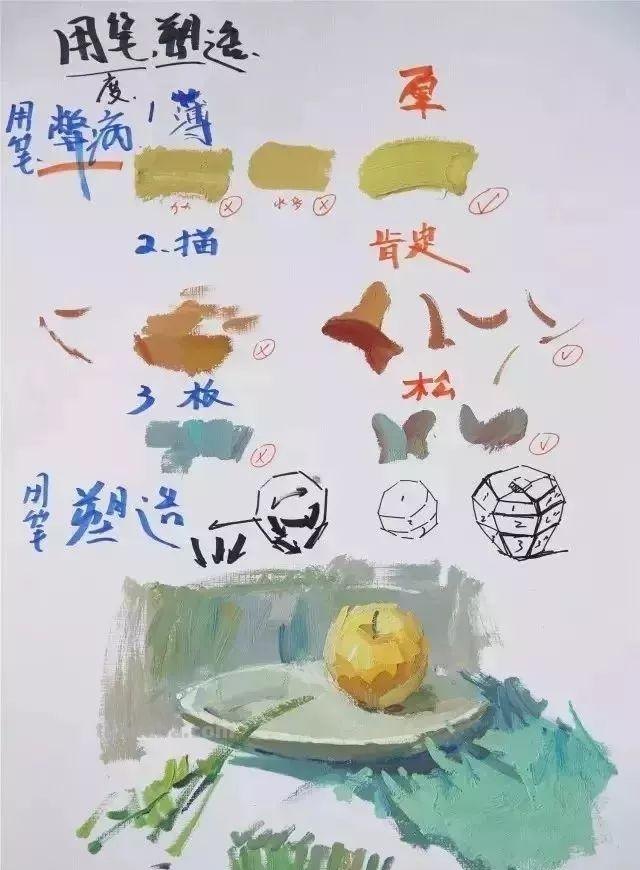 用笔.塑造.
度.
用笔.弊病
1薄
厚
水多
2.描
肯定
3 板
松
用笔 塑造
1
1 2
2 2
3 3